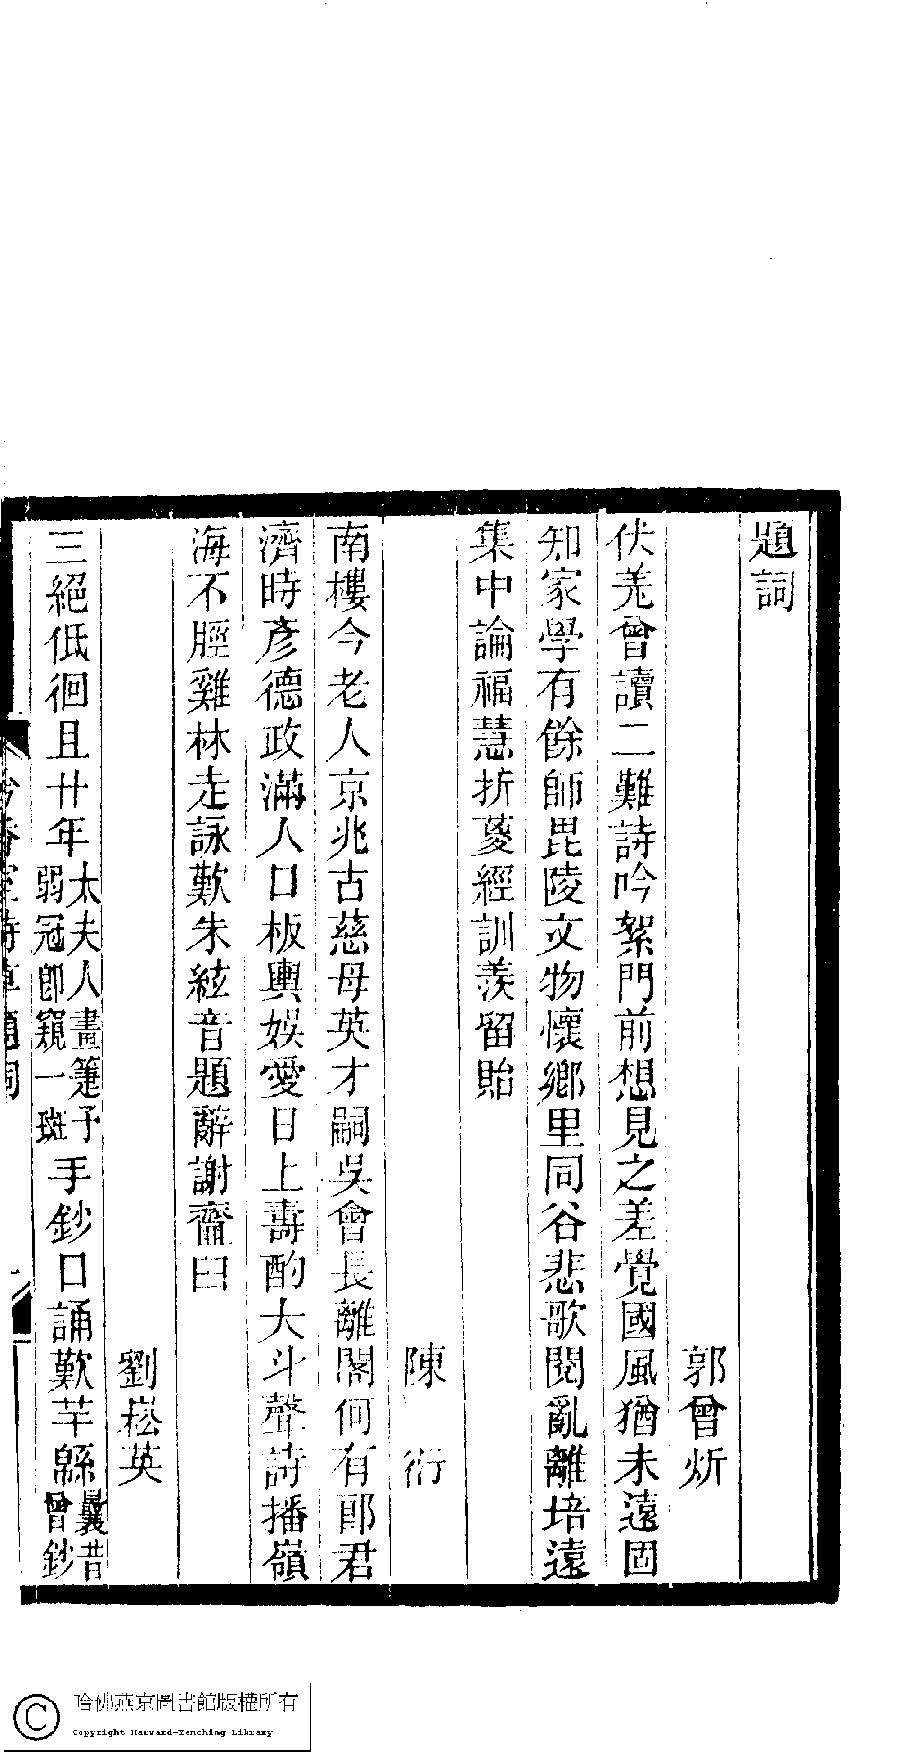 題詞
郭曾炘
伏羌曾讀二難詩吟絮門前想見之差覺國風猶未遠固
知家學有餘師毘陵文物懷鄉里同谷悲歌閱亂離培遠
集中論福慧折葼經訓羨留貽
陳衍
南樓今老人京兆古慈母英才嗣吳會長離閣何有郎君
濟時彥德政滿人口板輿娛愛日上壽酌大斗聲詩播嶺
海不脛雞林走詠歎朱絃音題辭謝虀臼
劉崧英
三絕低徊且廿年太夫人畫箑予弱冠卽窺一斑手鈔口誦歎芊緜曩昔曾鈔
哈佛燕京圖書館版權所有
Copyright Harvard-Yenching Library